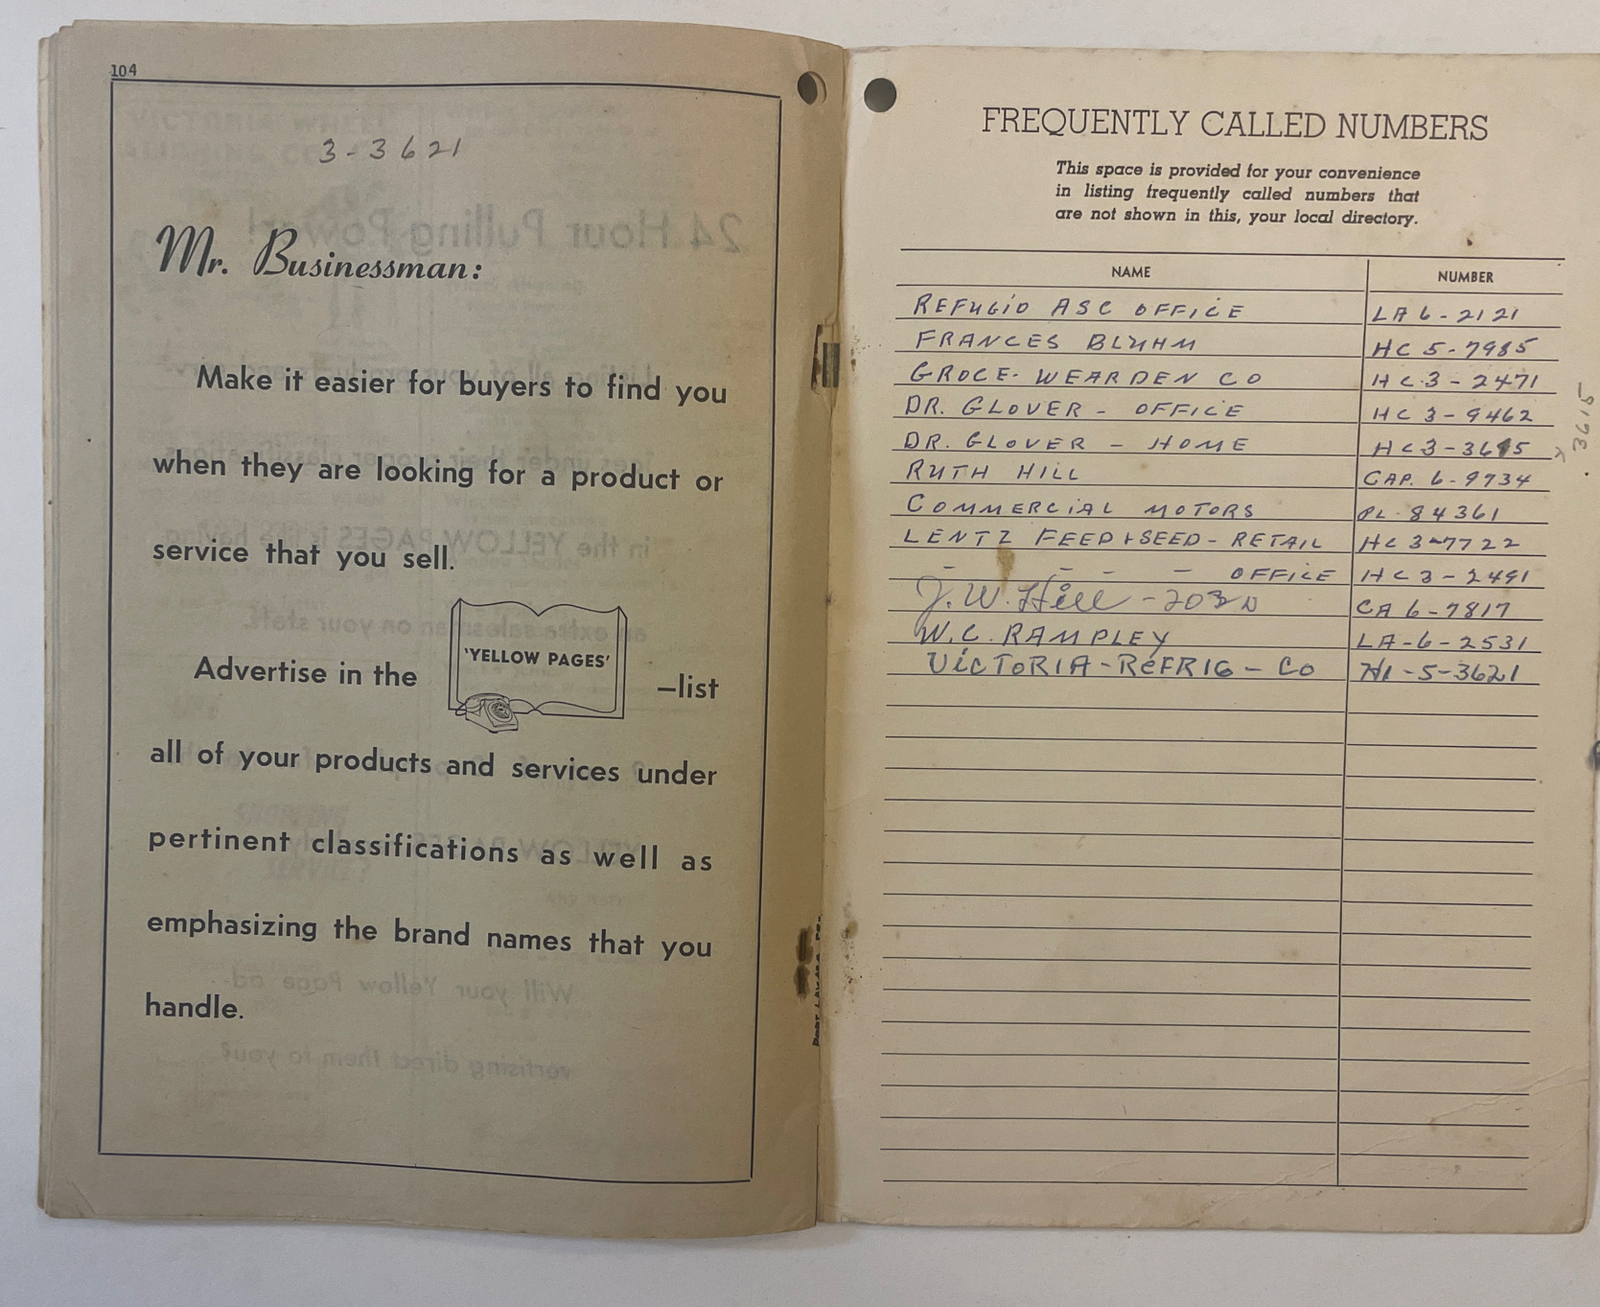 104
3-3621
Mr. Businessman:
Make it easier for buyers to find you
when they are looking for a product or
service that you sell.
Advertise in the 'YELLOW PAGES' —list
all of your products and services under
pertinent classifications as well as
emphasizing the brand names that you
handle.
FREQUENTLY CALLED NUMBERS
This space is provided for your convenience
in listing frequently called numbers that
are not shown in this, your local directory.
NAME NUMBER
REFUGIO ASC OFFICE LA 6-2121
FRANCES BLUHM HC 5-7985
GROCE-WEARDEN CO HC 3-2471
DR. GLOVER - OFFICE HC 3-9462
DR. GLOVER - HOME HC3-3615
3615
RUTH HILL CAP. 6-9734
COMMERCIAL MOTORS PL. 84361
LENTZ FEED + SEED - RETAIL HC 3-7722
- - - - OFFICE HC3-2491
J. W. Hill - CA 6-7817
W. C. RAMPLEY LA-6-2531
VICTORIA-REFRIG-CO HI-5-3621